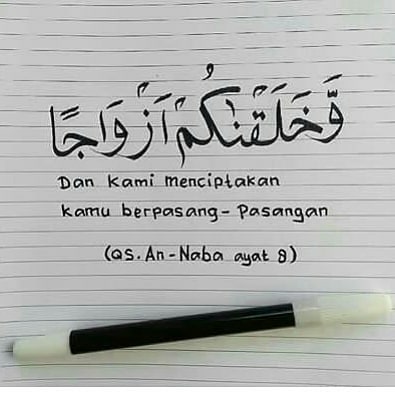 وَّخَلَقْنٰكُمْ اَزْوَاجًا
Dan Kami menciptakan
kamu berpasang-Pasangan
(QS. An-Naba ayat 8)